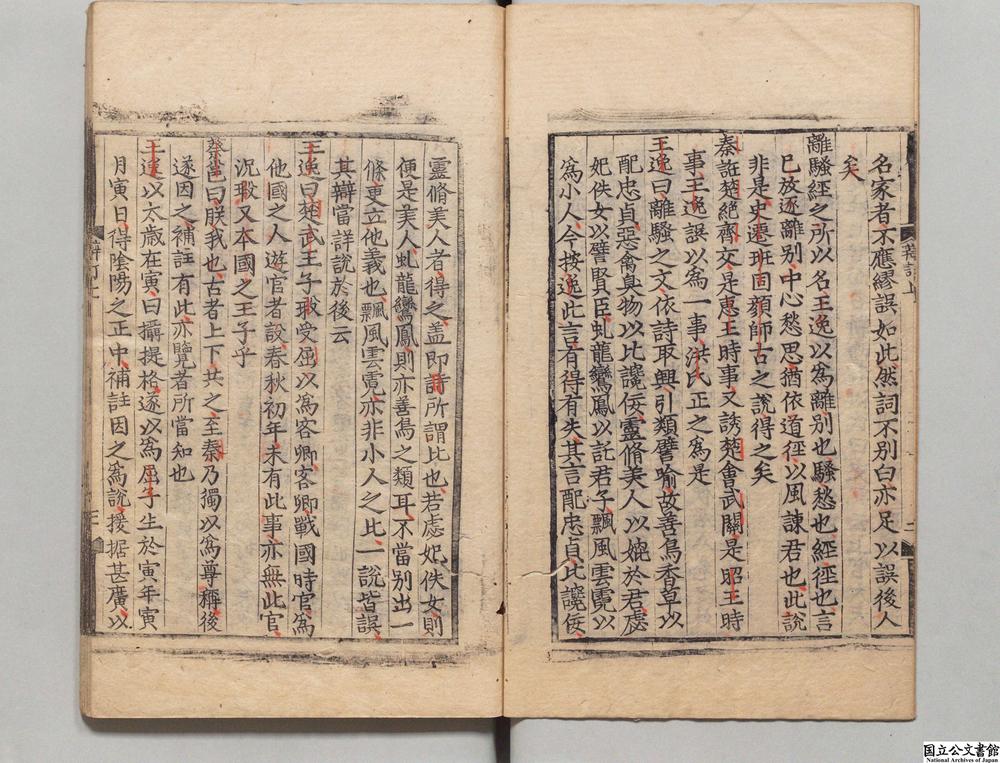 名家者不應繆誤如此然詞不別白亦足以誤後人
矣
離騷經之所以名王逸以爲離別也騷愁也經徑也言
已放逐離別中心愁思猶依道徑以風諫君也此說
非是史遷班固顔師古之說得之矣
秦誑楚絶齊交是惠王時事又誘楚會武關是昭王時
事王逸誤以爲一事洪氏正之爲是
王逸曰離騷之文依詩取興引類譬喻故善鳥香草以
配忠貞惡禽臭物以比讒佞靈脩美人以媲於君虙
妃佚女以譬賢臣虬龍鸞鳳以託君子飄風雲霓以
爲小人今按逸此言有得有失其言配忠貞比讒佞
靈脩美人者得之盖即詩所謂比也若虙妃佚女則
便是美人虬龍鸞鳳則亦善鳥之類耳不當別出一
條更立他義也飄風雲霓亦非小人之比一說皆誤
其辯當詳說於後云
王逸曰楚武王子瑕受屈以爲客卿客卿戰國時官爲
他國之人遊官者設春秋初年未有此事亦無此官
況瑕又本國之王子乎
蔡邕曰朕我也古者上下共之至秦乃獨以爲尊稱後
遂因之補註有此亦覽者所當知也
王逸以太歲在寅曰攝提格遂以爲屈子生於寅年寅
月寅日得陰陽之正中補註因之爲說援據甚廣以
辯訂上
二
辯訂上
三
国立公文書館
National Archives of Japan